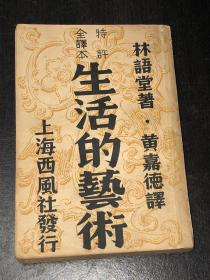 林語堂著·黄嘉德譯
特許
全譯本
生活的藝術
上海西風社發行